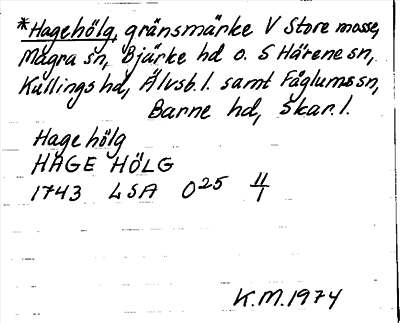 *Hagehölg, gränsmärke V Store mosse,
Magra sn, Bjärke hd o. S Härene sn,
Kullings hd, Älvsb. l. samt Fåglums sn,
Barne hd, Skar. l.
Hage hölg
HAGE HÖLG
1743 LSA O25 11/1
K.M. 1974